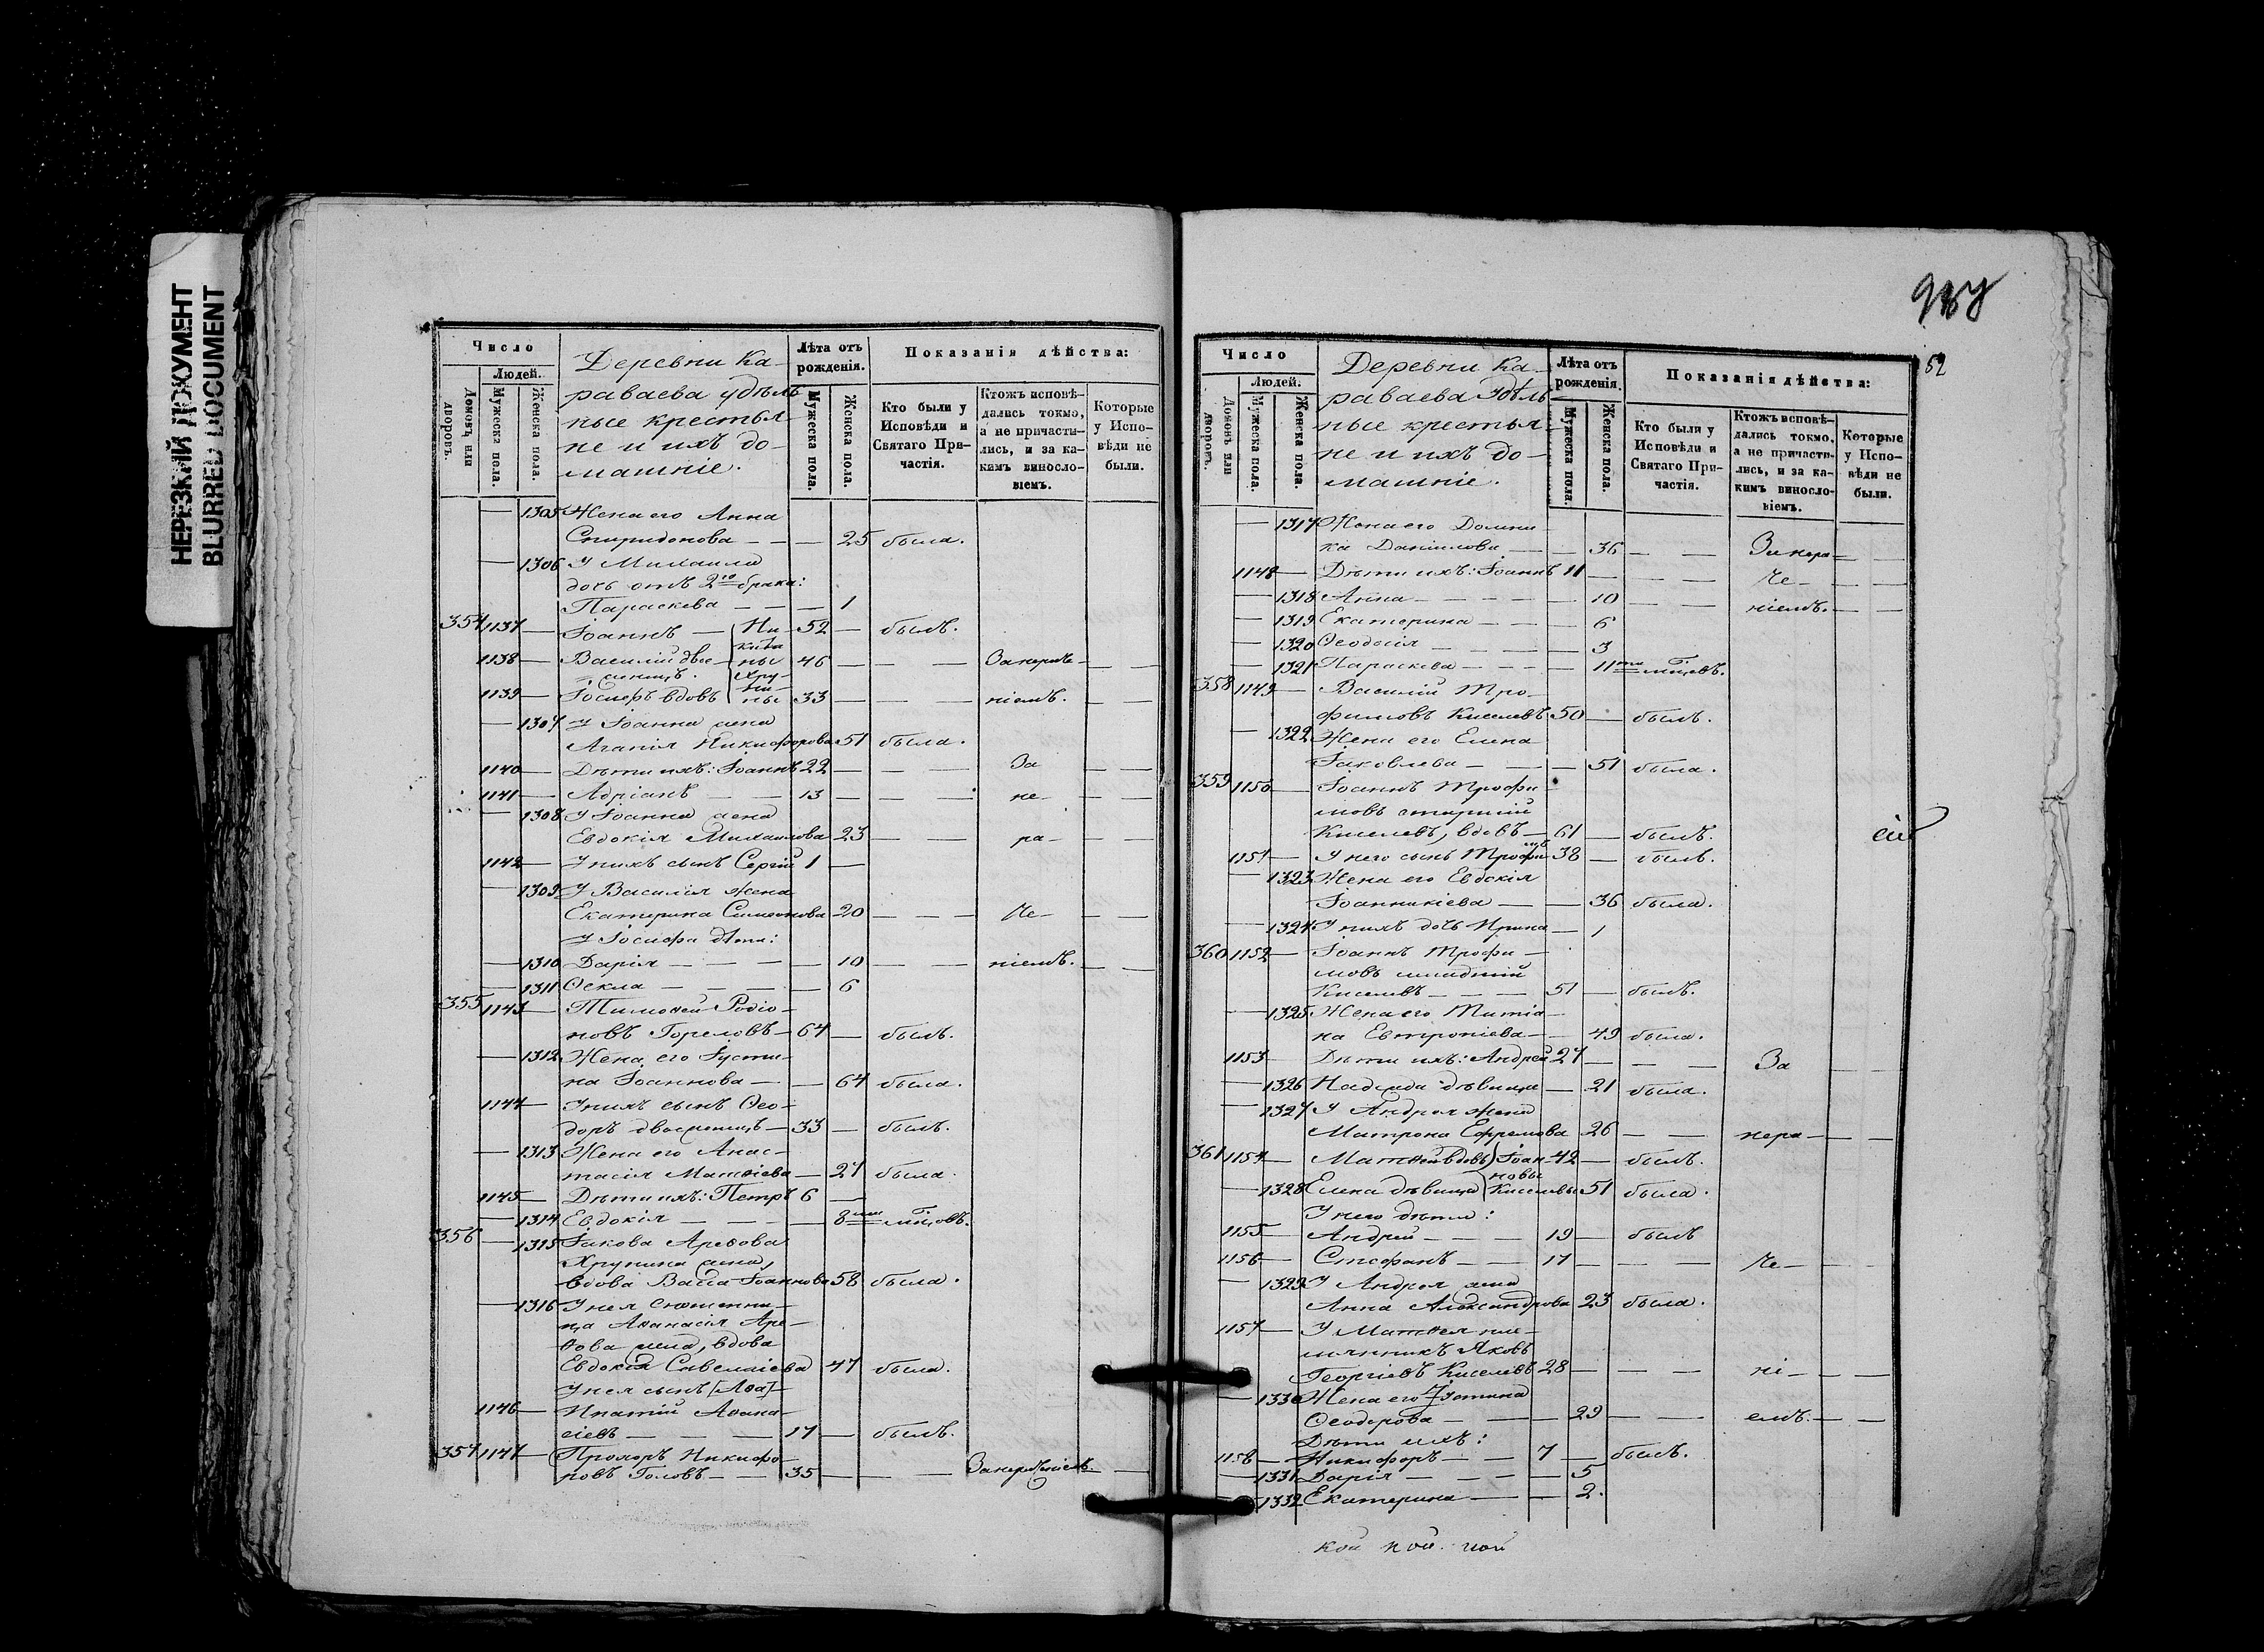 НЕРЕЗКИЙ ДОКУМЕНТ
BLURRED DOCUMENT
Число
Людей.
Домовъ или дворовъ.
Мужеска пола.
Женска пола.
Деревни Ка-
раваева удѣль-
ные крестья-
не и ихъ до-
машніе.
Лѣта отъ рожденія.
Мужеска пола.
Женска пола.
Показанія дѣйства:
Кто были у Исповѣди и Святаго При-
частія.
Ктожъ исповѣ-
дались токмо, а не причасти-
лись, и за ка-
кимъ винсло-
віемъ.
Которые у Испо-
вѣди не были.
— 1305 Жена его Анна
Спиридонова — — — 25 была.
— 1306 У Михаила
дочь отъ 2го брака:
Параскева — — — 1
354 1137 — Іоаннъ — Ни- 52 — былъ.
кити-
1138 — Василій две- ны 46 — — — Занерѣ- — —
женецъ. Хру-
1139 — Іосифъ вдовъ ни- ны 33 — — — ніемъ. — —
— 1307 У Іоанна жена
Агапія Никифорова 51 была.
1140 — Дѣти ихъ: Іоаннъ 22 — — — За — —
1141 — Адріанъ — — 13 — — — не- — —
— 1308 У Іоанна жена
Евдокія Михаилова 23 — — ра- — —
1142 — У нихъ сынъ Сергій 1 —
— 1309 У Василія жена
Екатерина Симеонова 20 — — — Че- — —
У Іосифа дѣти:
— 1310 Дарія — — — — 10 — — ніемъ. — —
— 1311 Ѳекла — — — — 6
355 1143 — Тимоѳей Родіо-
новъ Гореловъ — 64 — былъ.
— 1312 Жена его Іусти-
на Іоаннова — — 64 была.
1144 — У нихъ сынъ Ѳео-
доръ двоеженецъ — 33 — былъ.
— 1313 Жена его Анас-
тасія Матвіева — 27 была.
1145 — Дѣти ихъ: Петръ 6 —
— 1314 Евдокія — — — — 8ми мѣсяцовъ.
356 — 1315 Іакова Ареѳова
Хрунина жена,
вдова Васса Іоаннова 58 была.
— 1316 У нея
Аѳанасія Аре-
ѳова жена, вдова
Евдокія Савельіева 47 была.
У нея сынъ [Аѳа]-
1146 — Ипатій Аѳана-
сіевъ — — — 17 — былъ.
357 1147 — Прохоръ Никифо-
ровъ Головъ — — 35 — — — Занерѣченіемъ —
52
Число
Людей.
Домовъ или дворовъ.
Мужеска пола.
Женска пола.
Деревни Ка-
раваева Удѣль-
ные крестья-
не и ихъ до-
машніе.
Лѣта отъ рожденія.
Мужеска пола.
Женска пола.
Показанія дѣйства:
Кто были у Исповѣди и Святаго При-
частія.
Ктожъ исповѣ-
дались токмо, а не причасти-
лись, и за ка-
кимъ винсло-
віемъ.
Которые у Испо-
вѣди не были.
— 1317 Жена его Домни-
ка Даніилова — — 36 — — Занера- — —
1148 — Дѣти ихъ: Іоаннъ 11 — — — Че- — —
— 1318 Анна — — — — 10 — — ніемъ. — —
— 1319 Екатерина — — — 6
— 1320 Ѳеодосія — — — — 3
— 1321 Параскева — — — — 11ти мѣсяцевъ.
358 1149 — Василій Тро-
фимовъ Киселевъ 50 — былъ.
— 1322 Жена его Елена
Іаковлева — — — 51 была.
359 1150 — Іоаннъ Трофи-
мовъ старшій
Киселевъ, вдовъ — 61 — былъ.
1151 — У него сынъ Трофимъ 38 — былъ.
— 1323 Жена его Евдокія
Іоанникіева — — 36 была.
— 1324 У нихъ дочь Ирина — 1
360 1152 — Іоаннъ Трофи-
мовъ младшій
Киселевъ — — — 51 — былъ.
— 1325 Жена его Титіа-
на Евтропіева — — 49 была.
1153 — Дѣти ихъ: Андрей 27 — — — За — —
— 1326 Надежда дѣвица — 21 была.
— 1327 У Андрея жена
Матрона Ефремова 26 — — нера- — —
361 1154 — Матѳей вдовъ Іоан- 42 — былъ.
новы
— 1328 Елена дѣвица Киселевы 51 была.
У него дѣти:
1155 — Андрей — — — 19 — былъ
1156 — Стефанъ — — 17 — — — Че- — —
— 1329 У Андрея жена
Анна Александрова 23 была.
1157 — У Матѳея пле-
мянникъ Яковъ
Георгіевъ Киселевъ 28 — — — ні- — —
— 1330 Жена его Устина
Ѳеодорова — — — 29 — — емъ. — —
Дѣти ихъ:
1158 — Никифоръ — — 7 — былъ.
— 1331 Дарія — — — — 5
— 1332 Екатерина — — — 2.